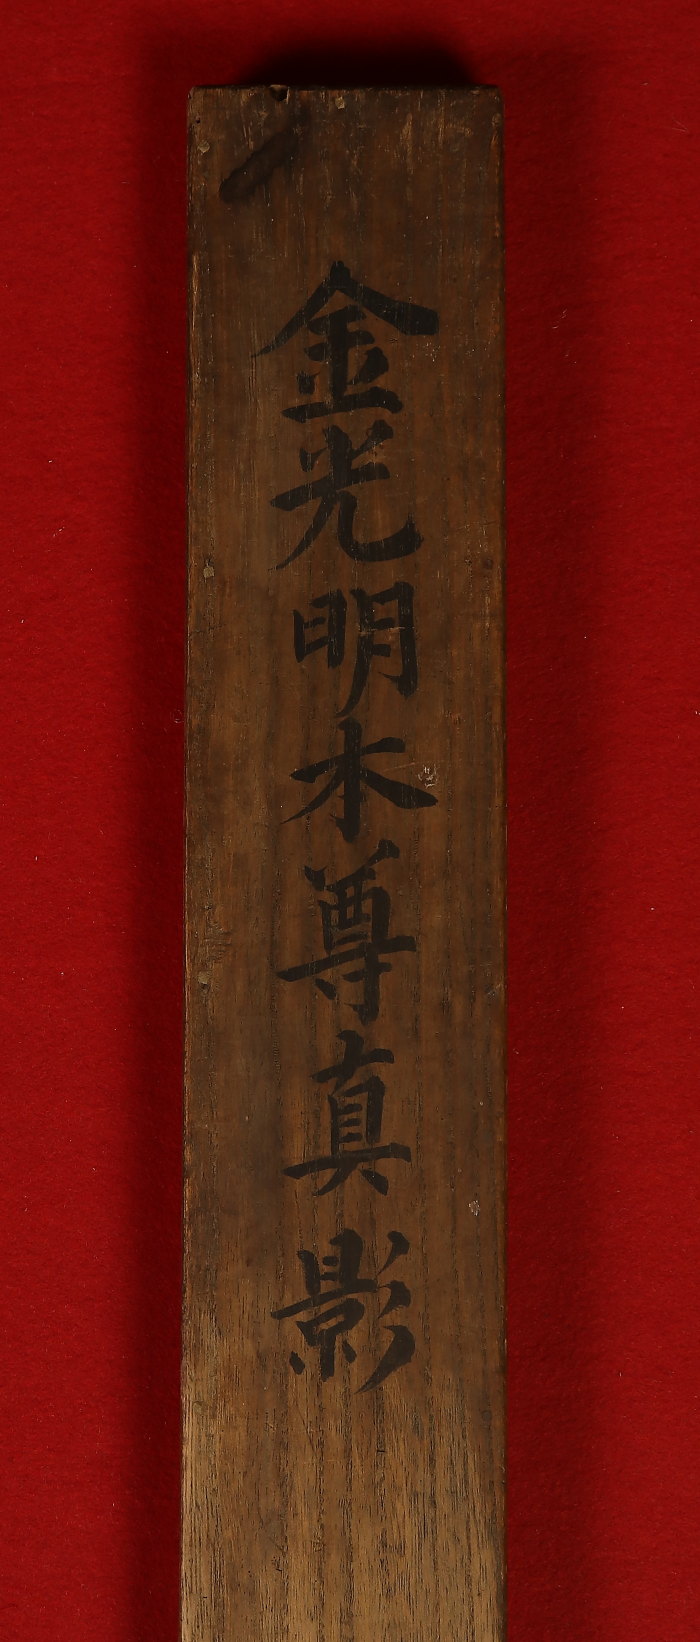 金光明本尊真影